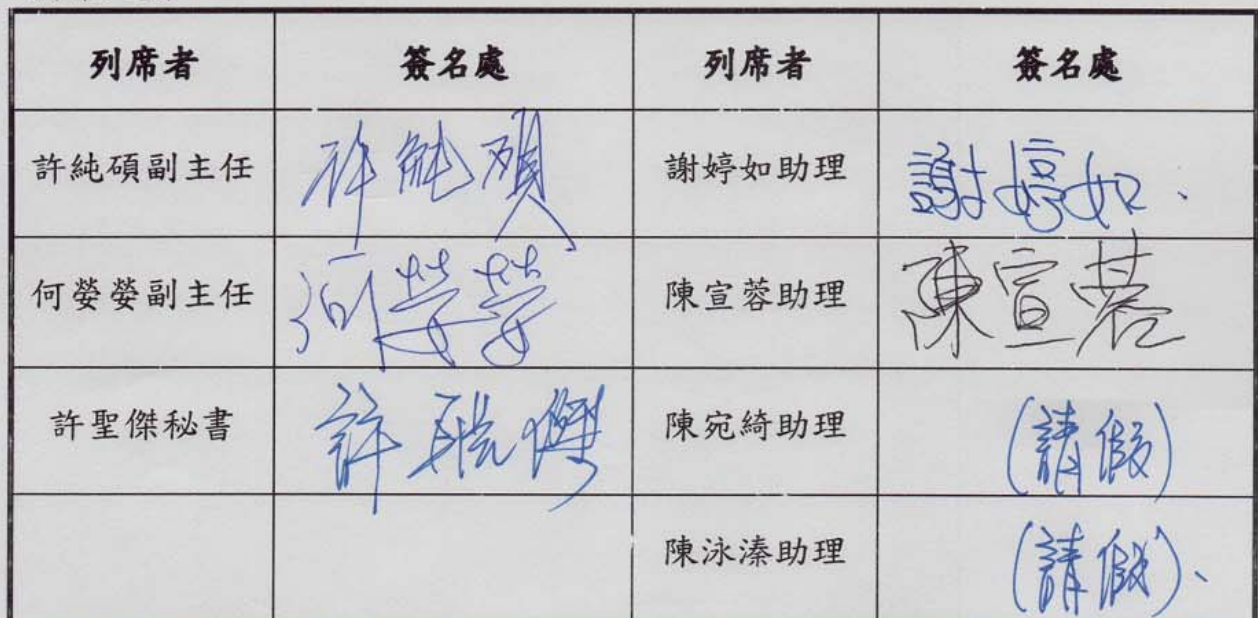 列席者 簽名處 列席者 簽名處
許純碩副主任 許純碩 謝婷如助理 謝婷如.
何嫈嫈副主任 何嫈嫈 陳宣蓉助理 陳宣蓉
許聖傑秘書 許聖傑 陳宛綺助理 (請假)
陳泳溱助理 (請假)、